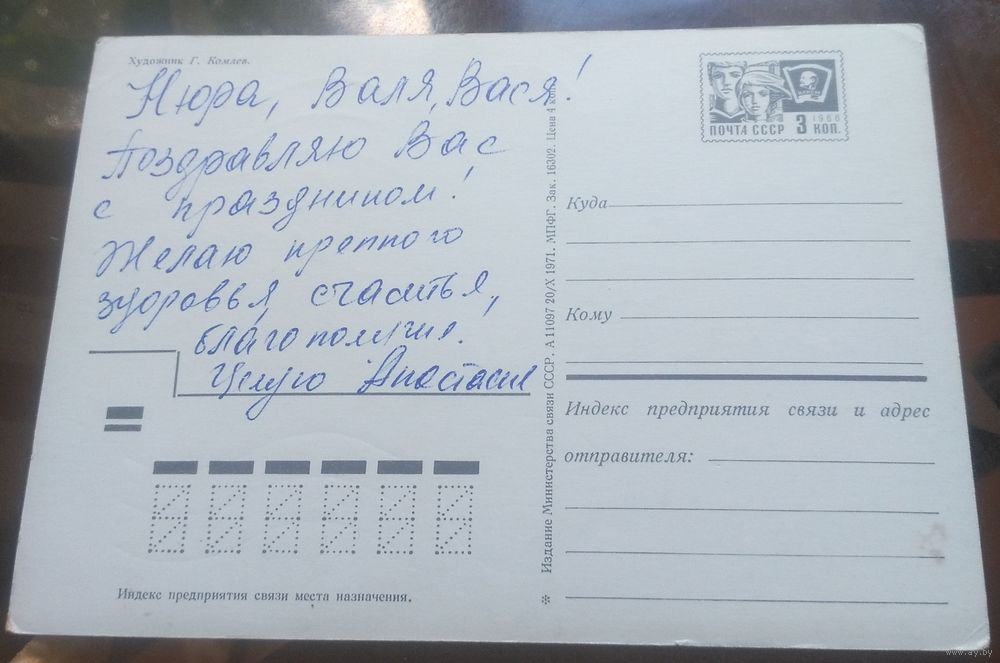 Художник Г. Комлев.
Нюра, Валя, Вася!
Поздравляю Вас
с праздником!
Желаю крепкого
здоровья, счастья,
благополучие.
Целую Анастасия
ПОЧТА СССР 3 КОП. 1966
Куда
Кому
Индекс предприятия связи и адрес
отправителя:
Издание Министерства связи СССР. А 11097 20/X 1971. МПФГ. Зак. 16302. Цена 4 коп.
Индекс предприятия связи места назначения.
www.ay.by